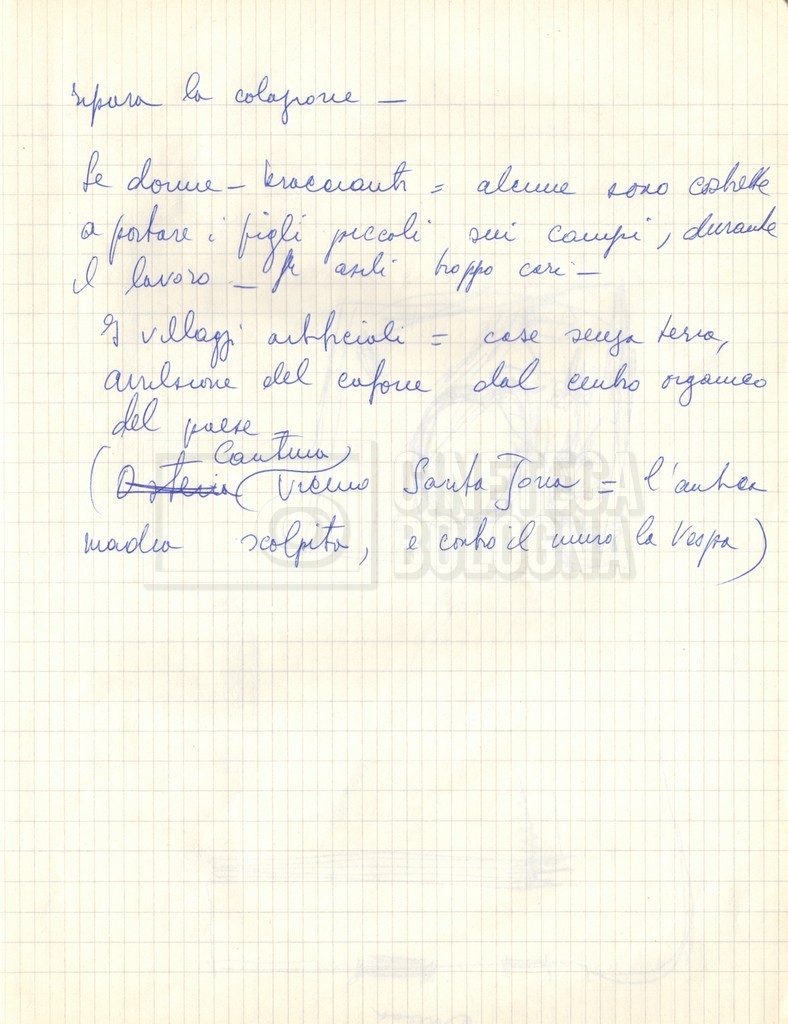 la colazione —
Le donne – braccianti = alcune sono costrette
a portare i figli piccoli sui campi, durante
il lavoro – asili troppo cari –
I villaggi artificiali = case senza terra,
avulsione del cafone dal centro organico
del paese –
Cantina
(Osteria vicino Santa = l'antica
madia scolpita, e contro il muro la Vespa)
CINETECA
BOLOGNA